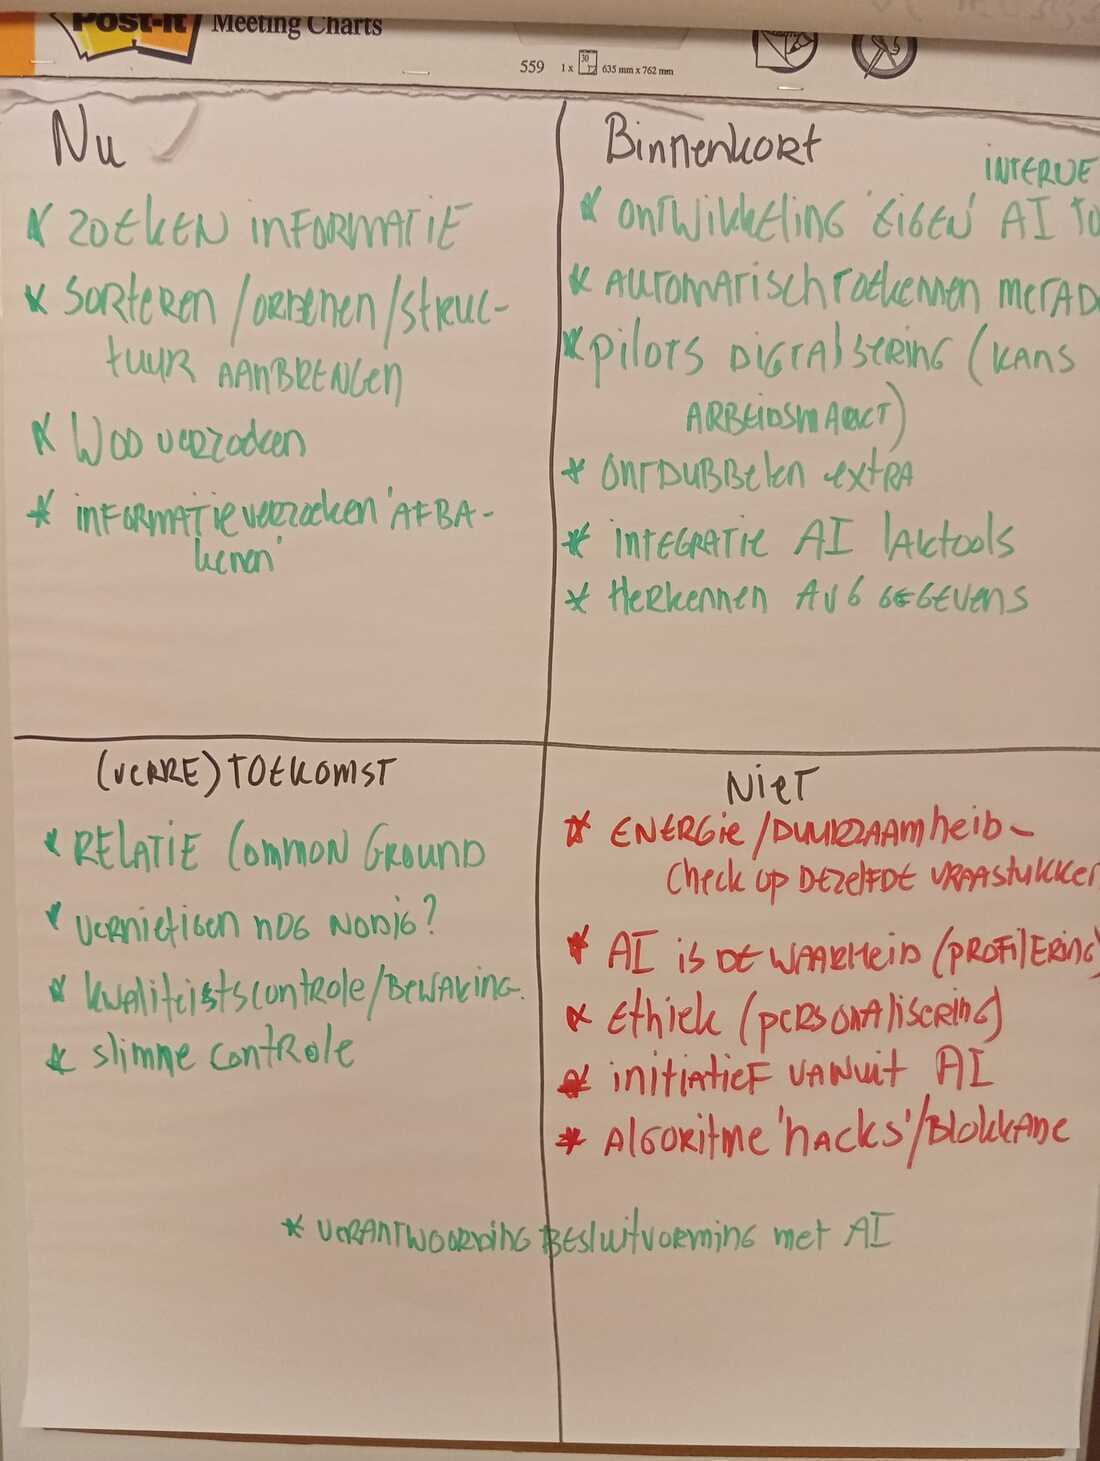 Post-it Meeting Charts
559 1 x 30 635 mm x 762 mm
Nu
* ZOEKEN INFORMATIE
* SORTEREN / ORDENEN / STRUC-
TUUR AANBRENGEN
* WOO VERZOEKEN
* INFORMATIEVERZOEKEN 'AFBA-
KENEN'
Binnenkort
INTERNE
* ONTWIKKELING 'EIGEN' AI TO
* AUTOMATISCH TOEKENNEN METAD
* PILOTS DIGITALISERING (KANS
ARBEIDSMARKT)
* ONTDUBBELEN EXTRA
* INTEGRATIE AI LAKTOOLS
* HERKENNEN AVG GEGEVENS
(VERRE) TOEKOMST
* RELATIE COMMON GROUND
* VERNIETIGEN NOG NODIG?
* KWALITEITSCONTROLE/BEWAKING.
* SLIMME CONTROLE
NIET
* ENERGIE/DUURZAAMHEID -
CHECK OP DEZELFDE VRAAGSTUKKEN
* AI IS DE WAARHEID (PROFILERING)
* ETHIEK (PERSONALISERING)
* INITIATIEF VANUIT AI
* ALGORITME 'HACKS'/BLOKKADE
* VERANTWOORDING BESLUITVORMING MET AI